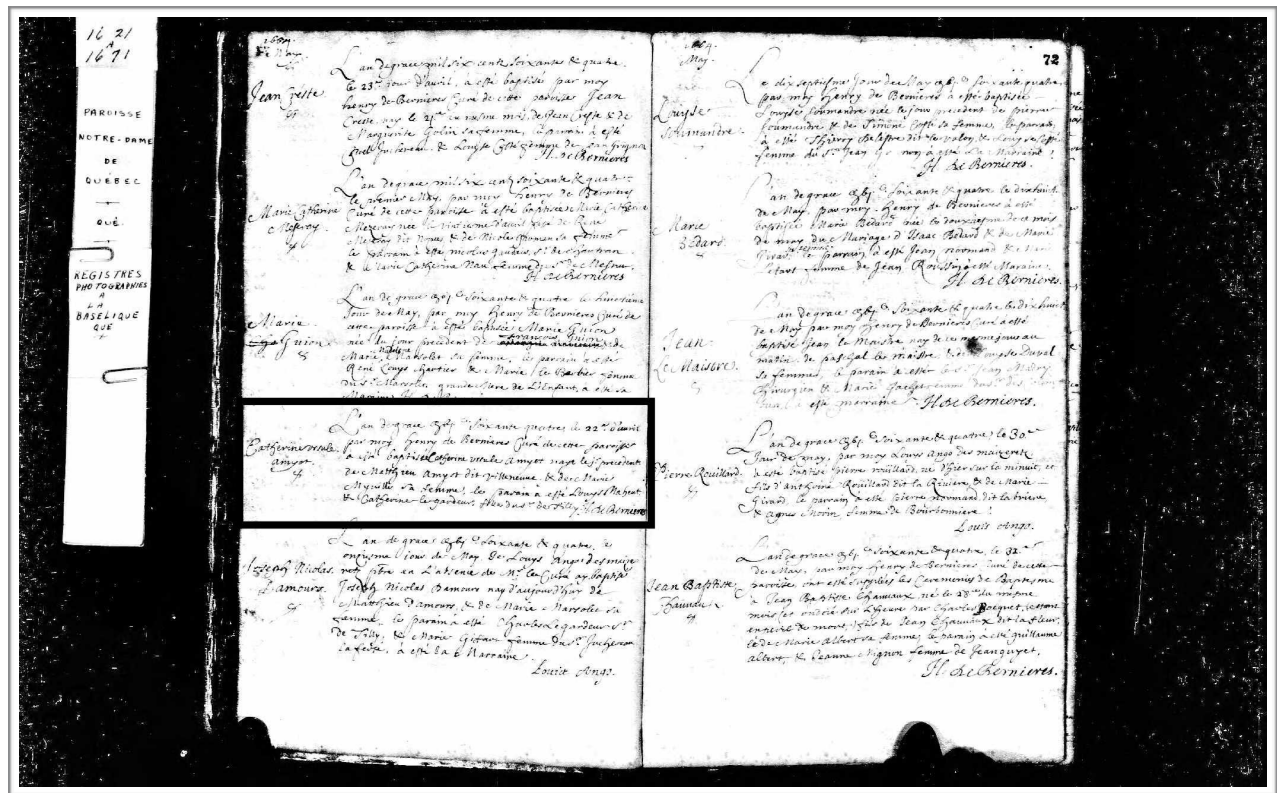 16 21
A
1671
PAROISSE
NOTRE-DAME
DE
QUÉBEC
QUÉ.
REGISTRES
PHOTOGRAPHIES
A
LA
BASELIQUE
QUE
1664
May
Jean Creste
L'an de grace mil six centz soixante & quatre
le 23e jour d'avril, a esté baptisé par moy
henry de Bernieres Curé de cette paroisse Jean
Creste, nay le du mesme mois, de Jean Creste & de
Marguerite Golin sa femme, le parain a esté
Jucherau & Louyse Costé femme de Jean Grignon
H. de Bernieres
Marie Catherine
Mezeray
L'an de grace mil six centz soixante & quatre
le premier May, par moy henry de Bernieres
Curé de cette paroisse a esté baptisée Marie Catherine
Mezeray née le d'avril de René
Mezeray dit Nopce & de Nicole sa femme
le parain a esté nicolas
& Marie Catherine femme du Sr de
H. de Bernieres
Marie
Guion
L'an de grace soixante & quatre le huictieme
Jour de May, par moy Henry de Bernieres Curé de
cette paroisse a esté baptisée Marie Guion
née du jour precedent de François Guion & de
Marie Marsolet sa femme, le parain a esté
René Louys Chartier & Marie le Barbier femme
du Sr Marsolet grande Mere de L'Enfant, a esté sa
Maraine
Catherine ursule
amyot
L'an de grace soixante quatre, le 22e d'avril
par moy Henry de Bernieres Curé de cette paroisse
a esté baptisée Catherine ursule Amyot naye le jr precedent
de Matthieu Amyot dit villeneuve & de Marie
Myville sa femme, le parain a esté Louys
& Catherine le gardeur, fille du Sr de Tilly. H. de Bernieres
Joseph Nicolas
Damours
L'an de grace soixante & quatre, le
onziesme jour de May Louys Ango des maize-
rets pbre en L'absence de Mr le Curé ay baptisé
Joseph Nicolas Damours nay d'aujourd'huy de
Matthieu Damours, & de Marie Marsolet sa
femme, le parain a esté Charles Legardeur Sr
de Tilly, & Marie Giffar femme du Sr Juchereau
la ferté, a esté la Marraine
Louis Ango.
1664
May
72
Louyse
Soumandre
Le dix septiesme Jour de May soixante quatre,
par moy Henry de Bernieres a esté baptisée
Louyse Soumandre née le jour precedent de pierre
Soumandre & de Simone Costé sa femme, le parain
a esté & Louyse Costé
femme du Sr Jean a esté La Maraine
H. de Bernieres.
Marie
Bedard
L'an de grace soixante & quatre le dixhuict
de May, par moy Henry de Bernieres a esté
baptisée Marie Bedard née le douziesme de ce mois
de may du Mariage d'Isaac Bedard & de Marie
Girard, le parain a esté Jean normand &
femme de Jean a esté Maraine
H. de Bernieres.
Jean
Le Maistre
L'an de grace soixante & quatre le dix huict
de May par moy Henry de Bernieres Curé a esté
baptisé Jean le Maistre nay de ce mesme jour au
matin de paschal le maistre & de Louyse Duval
sa femme, le parain a esté le Sr Jean Madry
Chirurgien & Marie femme du Sr
a esté marraine H. de Bernieres.
Pierre Rouillard
L'an de grace soixante & quatre, le 30e
Jour de may, par moy Louys Ango des maizerets
a esté baptisé pierre rouillard, né d'hier sur la minuit, et
fils d'anthoine Rouillard dit la Riviere, & de Marie
Girard, le parain a esté pierre normand dit la briere
& agnes Morin femme de Bourbonniere
Louis Ango.
Jean Baptiste
Chauvau
L'an de grace soixante & quatre, le
de May, par moy Henry de Bernieres Curé de cette
paroisse ont esté suppléés les Ceremonies de Baptesme
à Jean Baptiste Chauvaux né le 28e du mesme
mois & ondoié sur L'heure par Charles
de mort, fils de Jean Chauvaux dit la fleur,
& de Marie Albert sa femme, le parain a esté guillaume
albert, & Jeanne Mignon femme de Jean
H. de Bernieres.